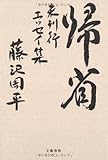 帰省
未刊行
エッセイ集
藤沢周平
文藝春秋